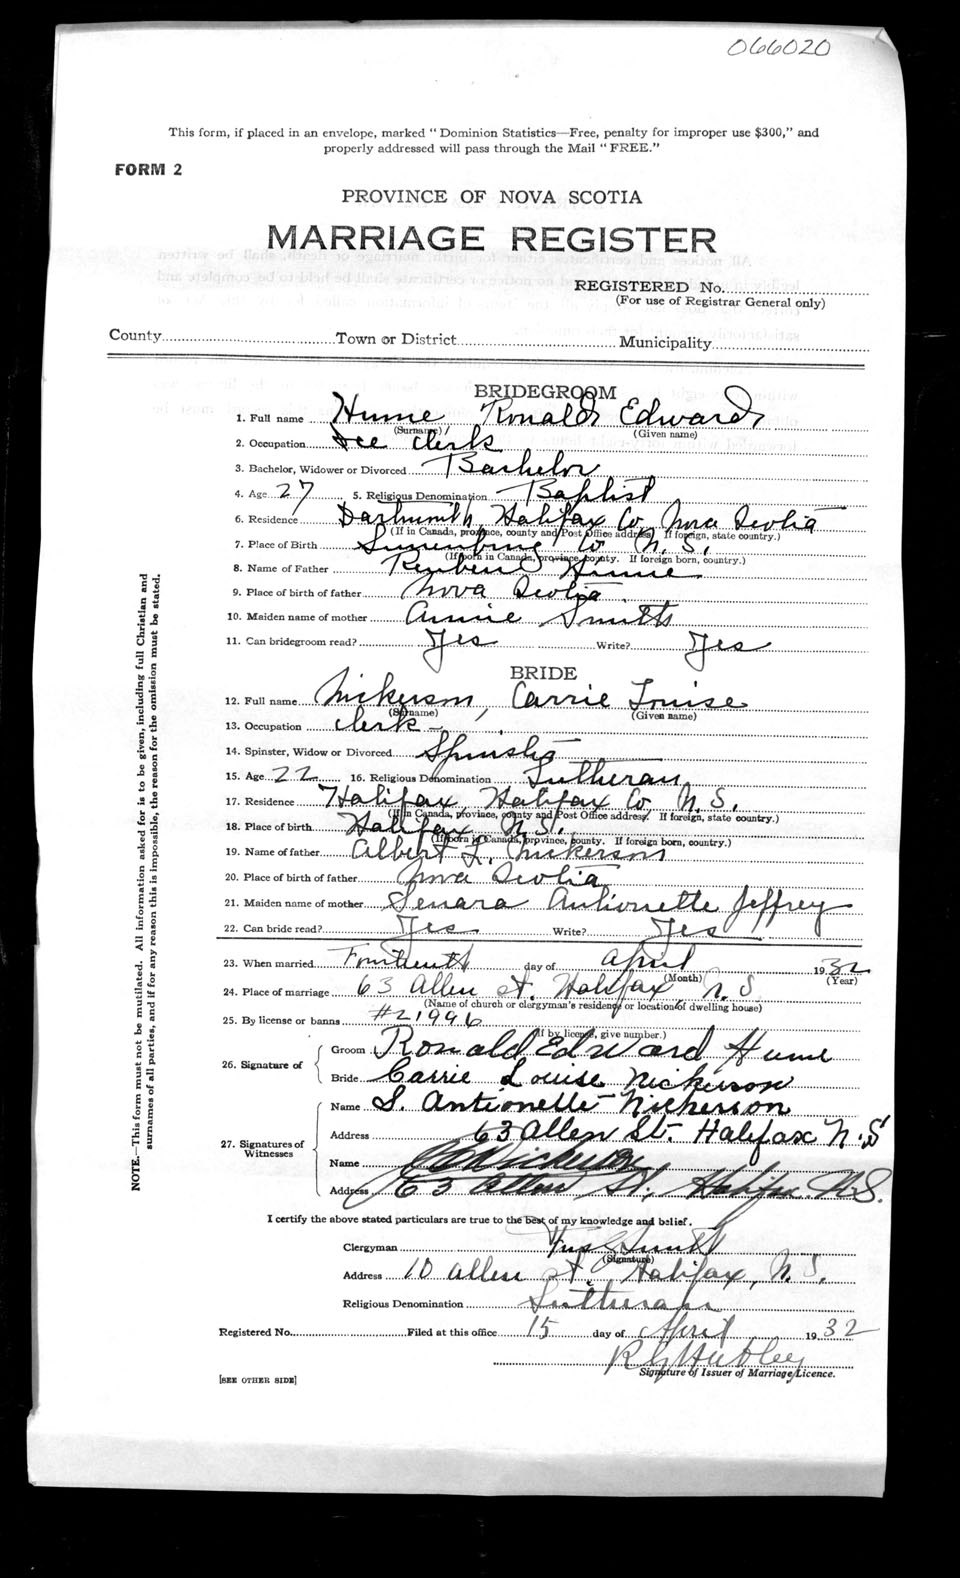 066020
This form, if placed in an envelope, marked "Dominion Statistics—Free, penalty for improper use $300," and
properly addressed will pass through the Mail "FREE."
FORM 2
PROVINCE OF NOVA SCOTIA
MARRIAGE REGISTER
REGISTERED No.
(For use of Registrar General only)
County Town or District Municipality
BRIDEGROOM
1. Full name Hume Ronald Edward
(Surname) (Given name)
2. Occupation Ice Clerk
3. Bachelor, Widower or Divorced Bachelor
4. Age 27 5. Religious Denomination Baptist
6. Residence Dartmouth, Halifax Co Nova Scotia
(If in Canada, province, county and Post Office address. If foreign, state country.)
7. Place of Birth Lunenburg Co N.S.
(If born in Canada, province, county. If foreign born, country.)
8. Name of Father Reuben Hume
9. Place of birth of father Nova Scotia
10. Maiden name of mother Annie Smith
11. Can bridegroom read? Yes Write? Yes
BRIDE
12. Full name Nickerson, Carrie Louise
(Surname) (Given name)
13. Occupation Clerk
14. Spinster, Widow or Divorced Spinster
15. Age 22 16. Religious Denomination Lutheran
17. Residence Halifax, Halifax Co N.S.
(If in Canada, province, county and Post Office address. If foreign, state country.)
18. Place of birth Halifax N.S.
(If born in Canada, prpvince, county. If foreign born, country.)
19. Name of father Albert L. Nickerson
20. Place of birth of father Nova Scotia
21. Maiden name of mother Senara Antionette Jeffrey
22. Can bride read? Yes Write? Yes
23. When married Fourteenth day of April 1932
(Month) (Year)
24. Place of marriage 63 Allen St. Halifax N.S.
(Name of church or clergyman's residence or location of dwelling house)
25. By license or banns #21996
(If by license, give number.)
26. Signature of Groom Ronald Edward Hume
Bride Carrie Louise Nickerson
27. Signatures of Witnesses Name S. Antionette Nickerson
Address 63 Allen St. Halifax N.S
Name Nickerson
Address 63 Allen St. Halifax N.S.
I certify the above stated particulars are true to the best of my knowledge and belief.
Clergyman
(Signature)
Address 10 Allen St. Halifax, N.S.
Religious Denomination Lutheran
Registered No. Filed at this office 15 day of April 1932
R G Hubley
Signature of Issuer of Marriage Licence.
[SEE OTHER SIDE]
NOTE.—This form must not be mutilated. All information asked for is to be given, including full Christian and
surnames of all parties, and if for any reason this is impossible, the reason for the omission must be stated.